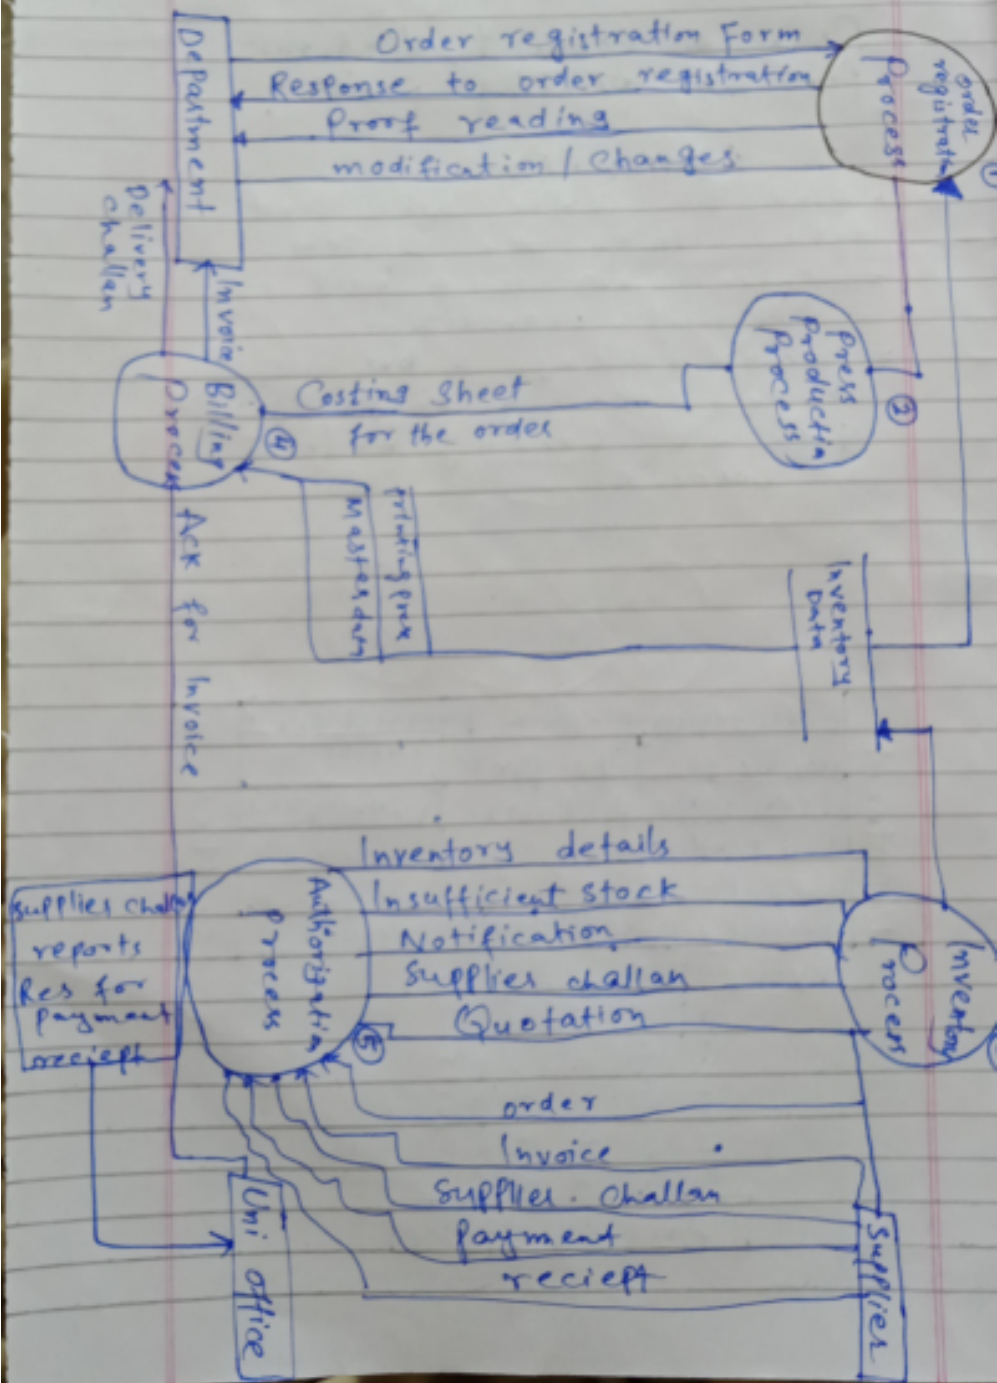 Department
Order registration Form
Response to order registration
Proof reading
modification / Changes
order
registratn
Process
1
Delivery
challan
Invoice
Billing
Process
4
Costing Sheet
for the order
Press
Productin
Process
2
printing press
Master data
Inventory
Data
Ack for Invoice
Inventory details
Insufficient Stock
Notification
Supplies challan
Quotation
Authorizatin
Process
5
Inventory
Process
supplies challan
reports
Res for
payment
reciept
order
Invoice
Supplies. Challan
payment
reciept
Uni office
Supplier